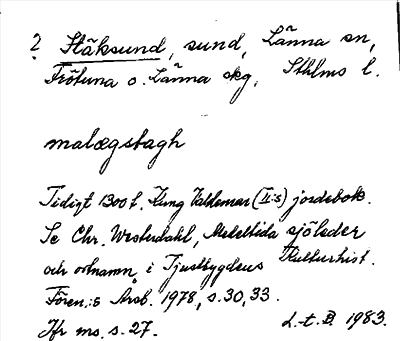 ? Stäksund, sund, Länna sn,
Frötuna o. Länna skg, Sthlms l.
malægstagh
Tidigt 1300 t. Kung Valdemar (II:s) jordebok.
Se Chr. Westerdahl, Medeltida sjöleder
och ortnamn i Tjustbygdens Kulturhist.
Fören.:s Årsb. 1978, s. 30, 33.
Jfr ms. s. 27.
1983.